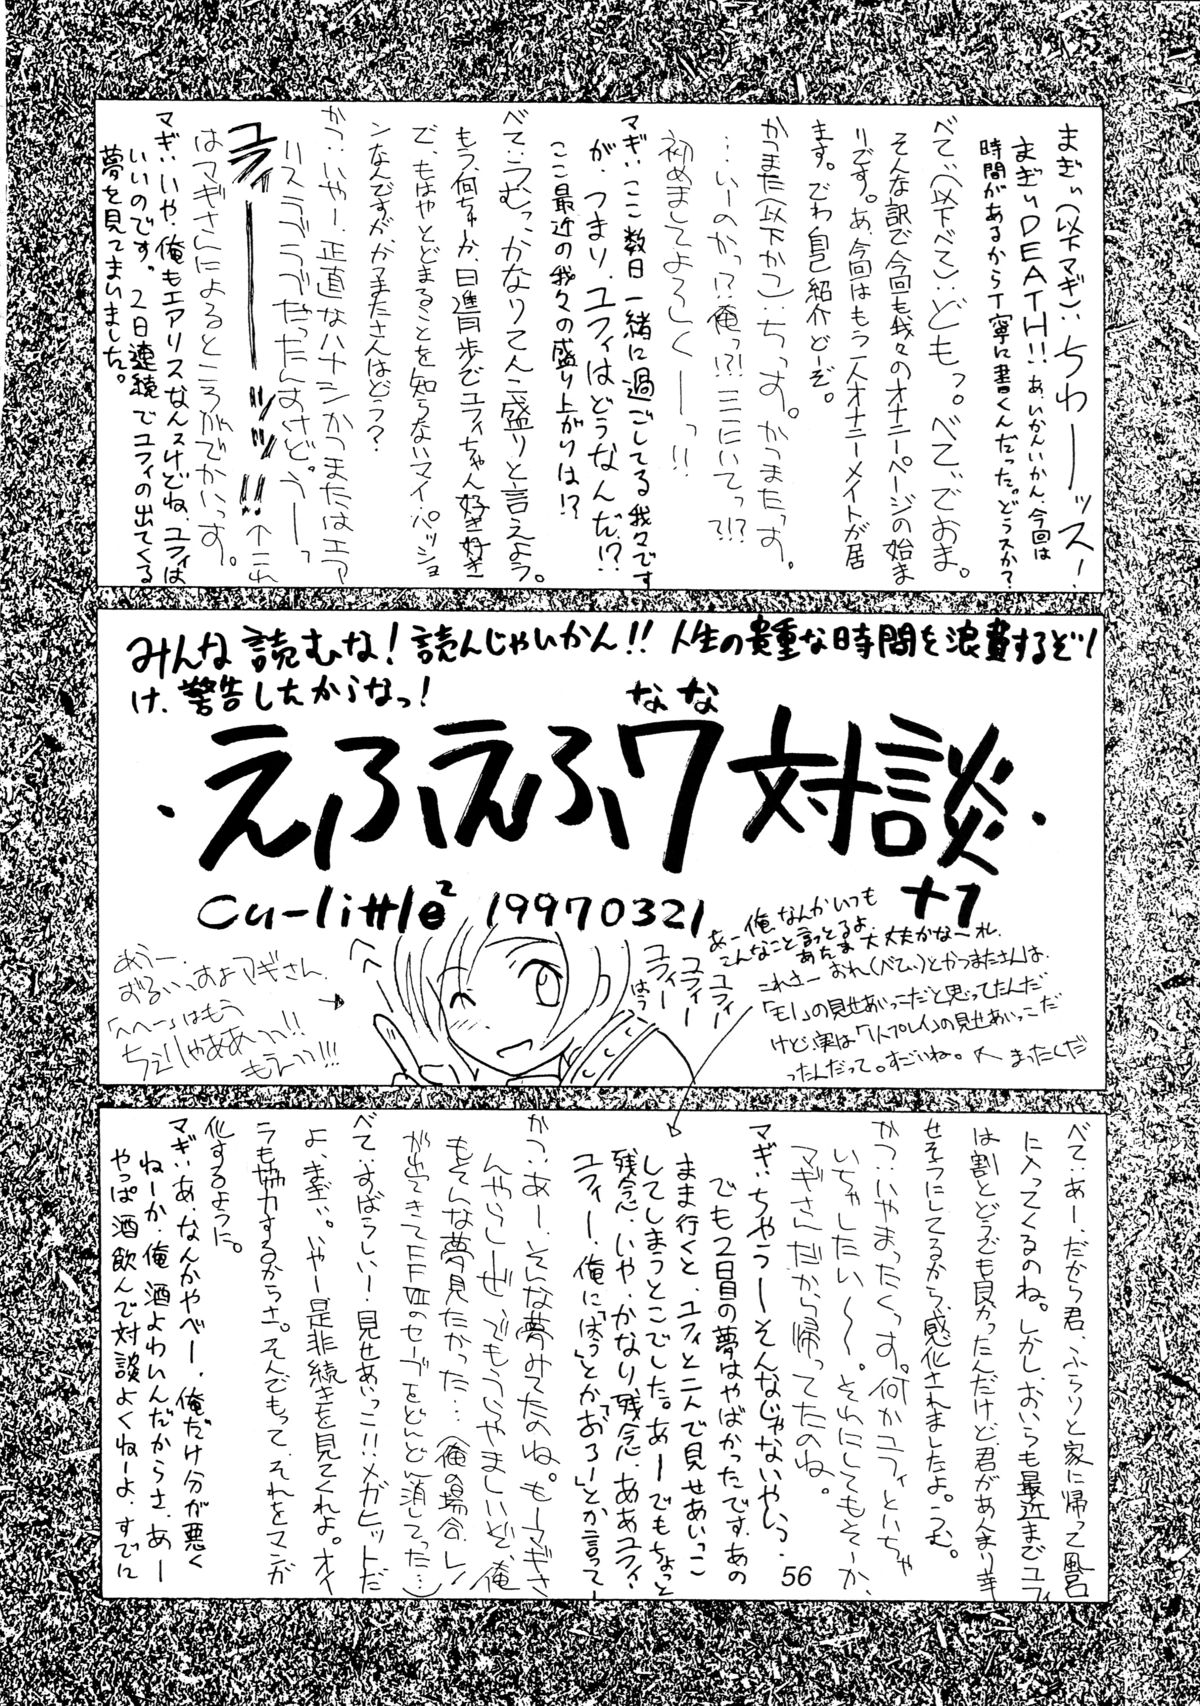 まぎぃ(以下マギ)‥ちわーッス!
まぎぃDEATH!!あ、いかんいかん、今回は
時間があるから丁寧に書くんだった。どうスか?
べて(以下べて)‥どもっ。べてでおま。
そんな訳で今回も我々のオナニーページの始ま
りです。あ、今回はもう一人オナニーメイトが居
ます。でわ自己紹介どーぞ。
かつまた(以下かつ)‥ちっす。かつまたっす。
…いーのかっ!?俺っ!?ここにいてっ?!?
初めましてよろしくーっ!!
マギ‥ここ数日一緒に過ごしてる我々です
が、つまり、ユフィはどうなんだ!?
ここ最近の我々の盛り上がりは!?
べて‥うむっかなりてんこ盛りと言えよう。
もう、何ちゅーか、日進月歩でユフィちゃん好き好き
で、もはやとどまることを知らないマイ・パッショ
ンなんですがかつまたさんはどう?
かつ‥いやー、正直なハナシかつまたはエア
リスラブラブだったんすけどぅーっ
ユラーーーッッ!!↑これ
はマギさんによるところがでかいっす。
マギ‥いや、俺もエアリスなんスけどね、ユフィは
いいのです。2日連続でユフィの出てくる
夢を見てまいました。
みんな読むな!読んじゃいかん!!人生の貴重な時間を浪費するぞ!
け、警告したからなっ!
なな
・えふえふ7対談・
+1
Cu-little2 19970321
あー俺なんかいつも
こんなこと言っとるよ。
あたま大丈夫かな〜れ。
これさーおれ(べてぃ)とかつまたさんは、
「モノ」の見せあいっこだと思ってたんだ
けど、実は「(ノプレイ」の見せあいっこだ
ったんだって。すごいね。へ まったくだ
ユフィー
ユフィー
ユフィー
はう
へへ
あうー、
ずるいっすよマギさん、
「へへー」はもう
ちぇりゃああっっ!!
もえっっ!!!
べて‥あー、だから君、ふらりと家に帰って風呂
に入ってくるのね。しかし、おいらも最近までユフィ
は割とどうでも良かったんだけど、君があんまり幸
せそうにしてるから、感化されましたよ。うむ。
かつ‥いやまったくっす。何かユフィといちゃ
いちゃしたい〜〜。それにしてもそーか、
マギさんだから帰ってたのね。
マギ‥ちゃうーそんなじゃないやいっ。
でも2日目の夢はやばかったです。あの
まま行くと、ユフィと二人で見せあいっこ
してしまうとこでした。あーでもちょっと
残念、いや、かなり残念、ああユフィ、
ユフィー、俺に「ばっ」とか「おろー」とか言ってー
かつ‥あー、そんな夢みてたのね。もーマギさ
んやらしーぜ、でもうらやましいぞ、俺
もそんな夢見たかった…(俺の場合、レ
が出てきてFF7のセーブをどんどん消してった…)
べて‥すばらしい!見せあいっこ!!メガヒットだ
よ、まぎぃ。いやー是非続きを見てくれよ。オイ
ラも協力するからさ。そんでもって、それをマンガ
化するように。
マギ‥あ、なんかやべー、俺だけ分が悪く
ねーか、俺酒よわいんだからさ、あー
やっぱ酒飲んで対談よくねーよ、すでに
56